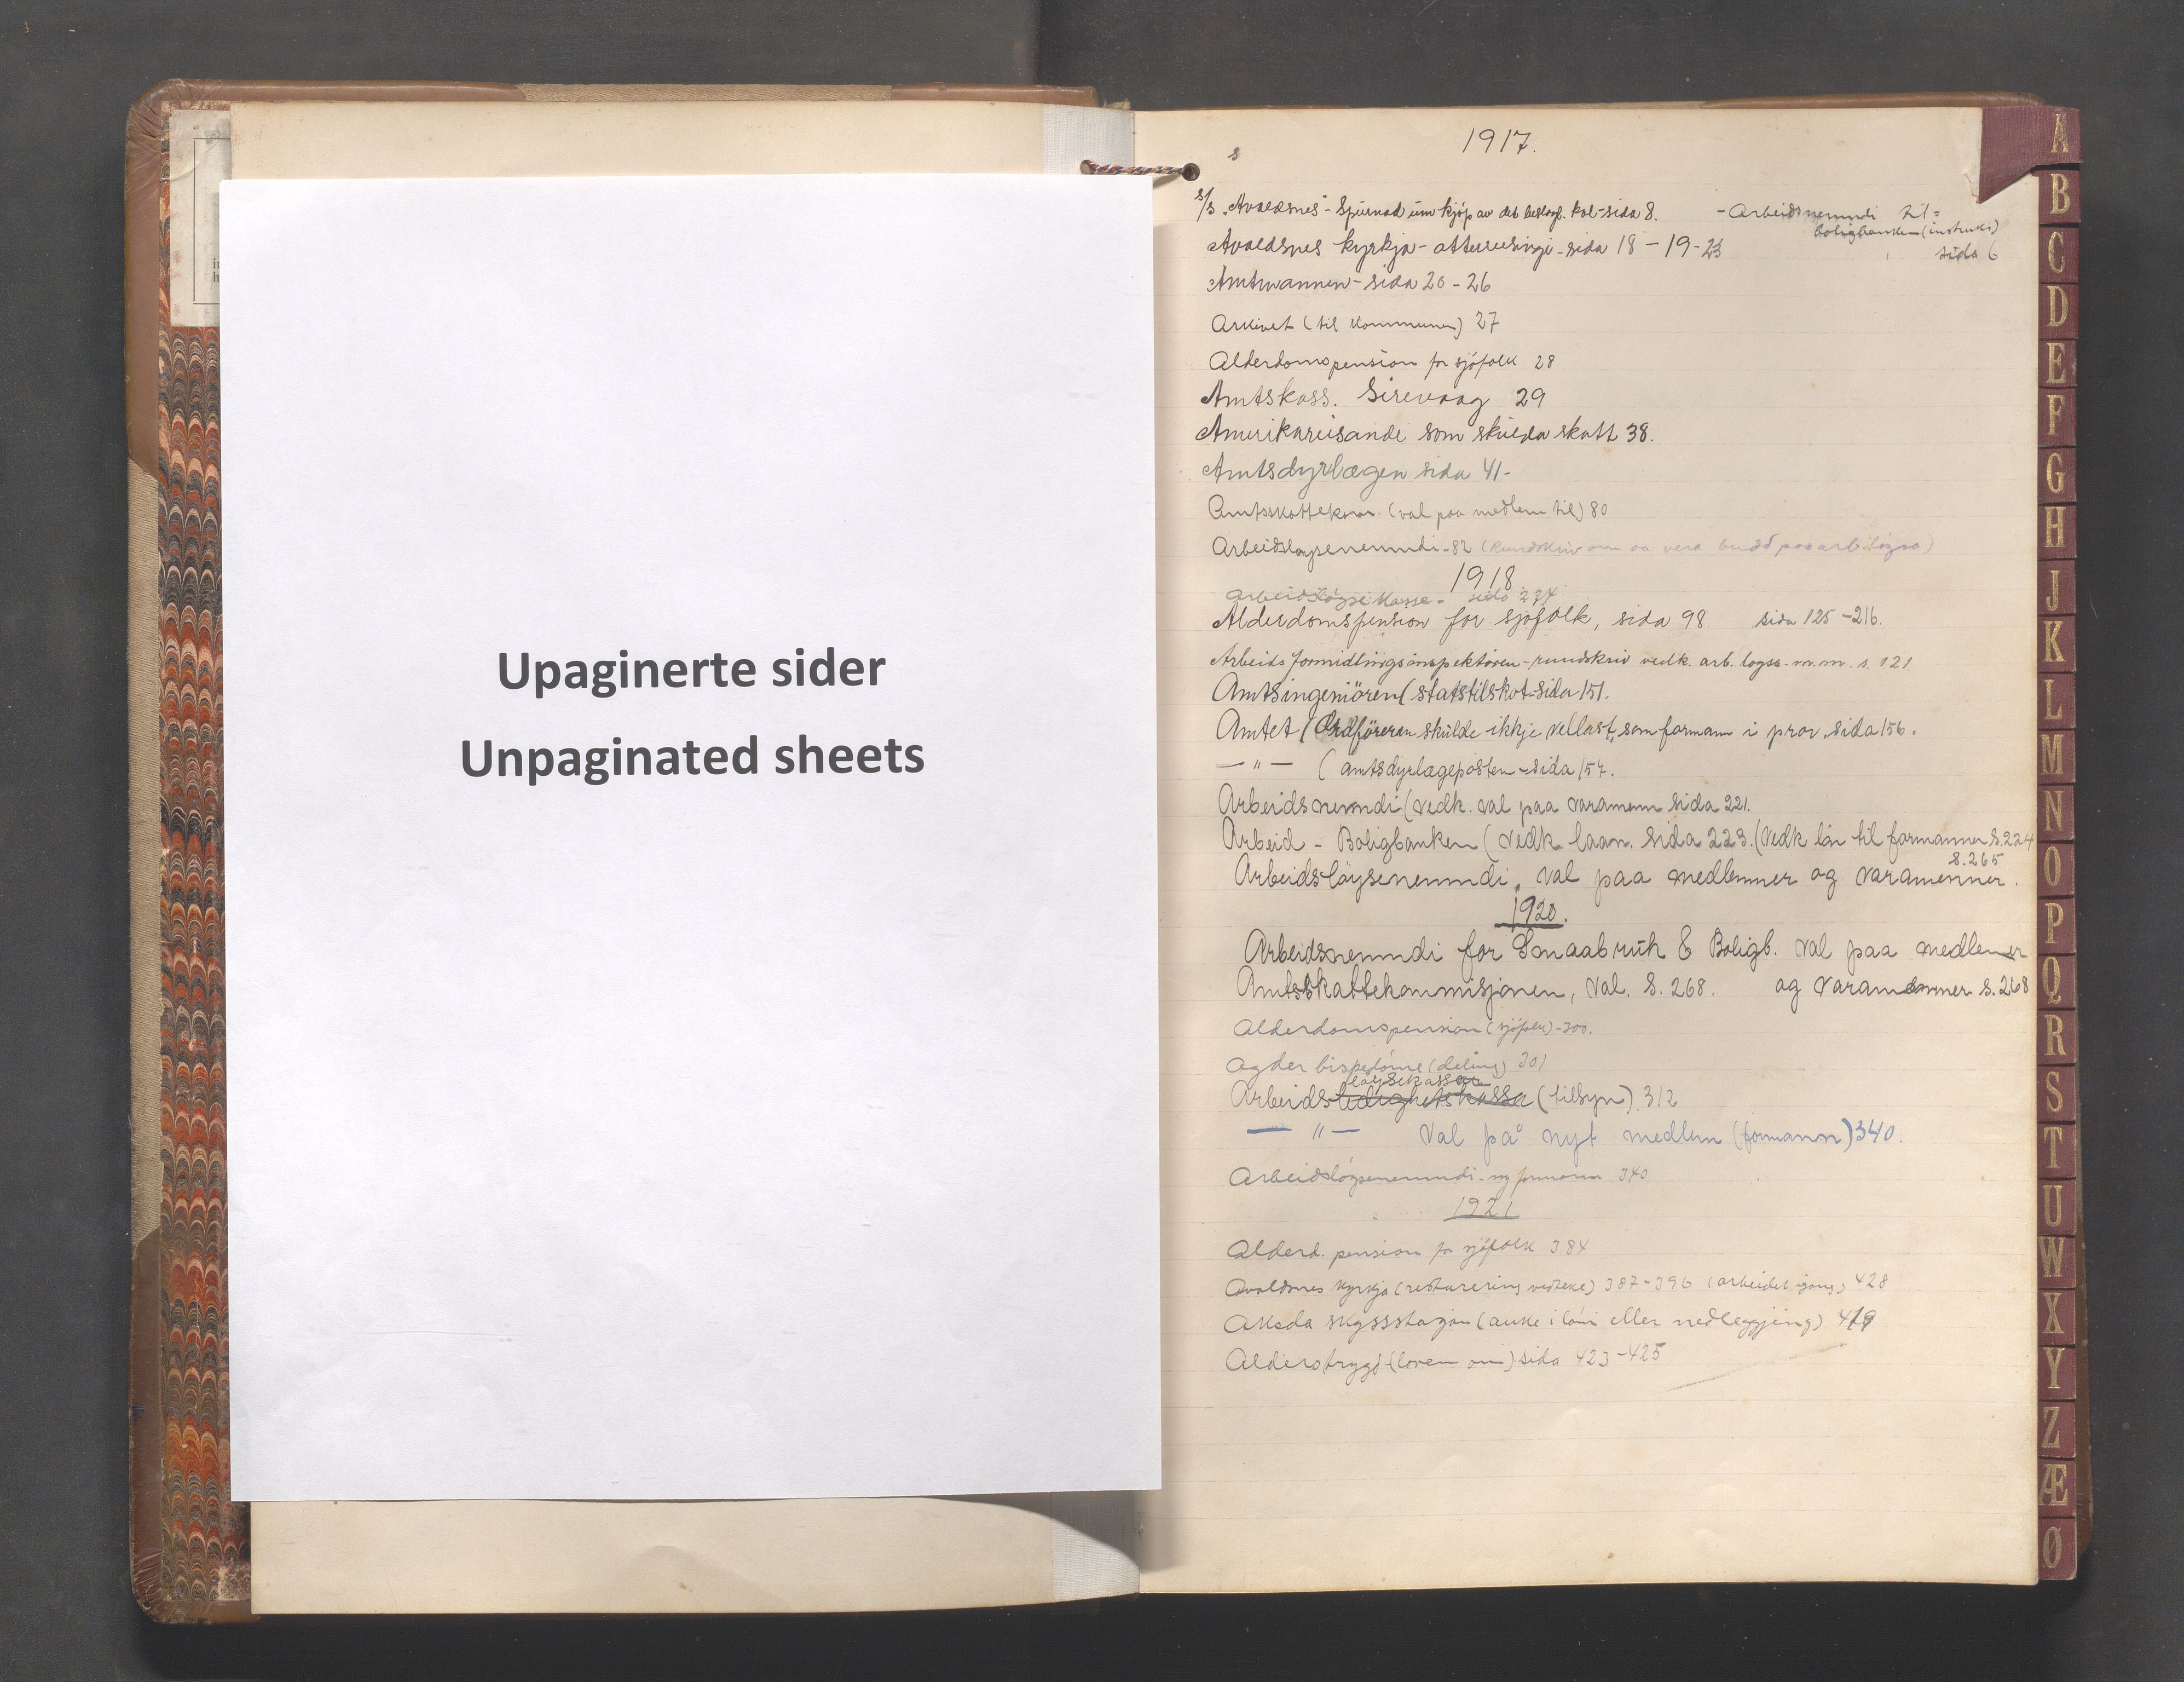 Upaginerte sider
Unpaginated sheets
1917.
s/s „Avaldsnes" - Spursmaal um kjøp av det kol - sida 8.
- Arbeidsnemndi til =
boligbanken (instruks)
sida 6
Avaldsnes kyrkja - atterreisingi - sida 18 - 19 - 23
Amtmannen - sida 20 - 26
Arkivet (til kommunen) 27
Alderdomspension for sjøfolk 28
Amtskass. Sirevaag 29
Amerikareisande som skulda skatt 38.
Amtsdyrlægen sida 41-
Amtsskattekom. (val paa medlem til) 80
Arbeidsløysenemndi - 82 (Rundskriv om aa vera budd paa arb.løysa)
1918
Arbeidsløysekasse - sida 234
Alderdomspension for sjøfolk, sida 98 sida 125 - 216.
Arbeidsformidlingsinspektøren - rundskriv vedk. arb. løysa m.m. s. 121.
Amtsingeniören (statstilskot - sida 151.
Amtet (Ordföreren skulde ikkje vellast som formann i prov. sida 156.
— " — (amtsdyrlægeposten - sida 157.
Arbeidsnemndi (vedk. val paa varamenn sida 221.
Arbeid - Boligbanken (vedk. laan. sida 223. (vedk lån til formannen S. 224
S. 265
Arbeidslöysenemndi, val paa medlemmer og varamenner.
1920.
Arbeidsnemndi for Smaabruk & Boligb. val paa medlemer
Amtsskattekommisjonen, val. S. 268. og varamenner S. 268
Alderdomspension (sjøfolk) - 300.
Agder bispedøme (deling) 301
løysekassar
Arbeidsledighetskassa (tilsyn) 312
— " — Val på nyt medlem (formann) 340.
Arbeidsløysenemndi - ny formann 340
1921
Alderd. pension for sjøfolk 384
Avaldsnes kyrkja (restaurering vedteke) 387 - 396 (arbeidet igang) 428
Aksda skysstasjon (auke i løn eller nedleggjing) 419
Alderstrygd (loven om) sida 423 - 425
A
B
C
D
E
F
G
H
J
K
L
M
N
O
P
Q
R
S
T
U
W
X
Y
Z
Æ
Ø